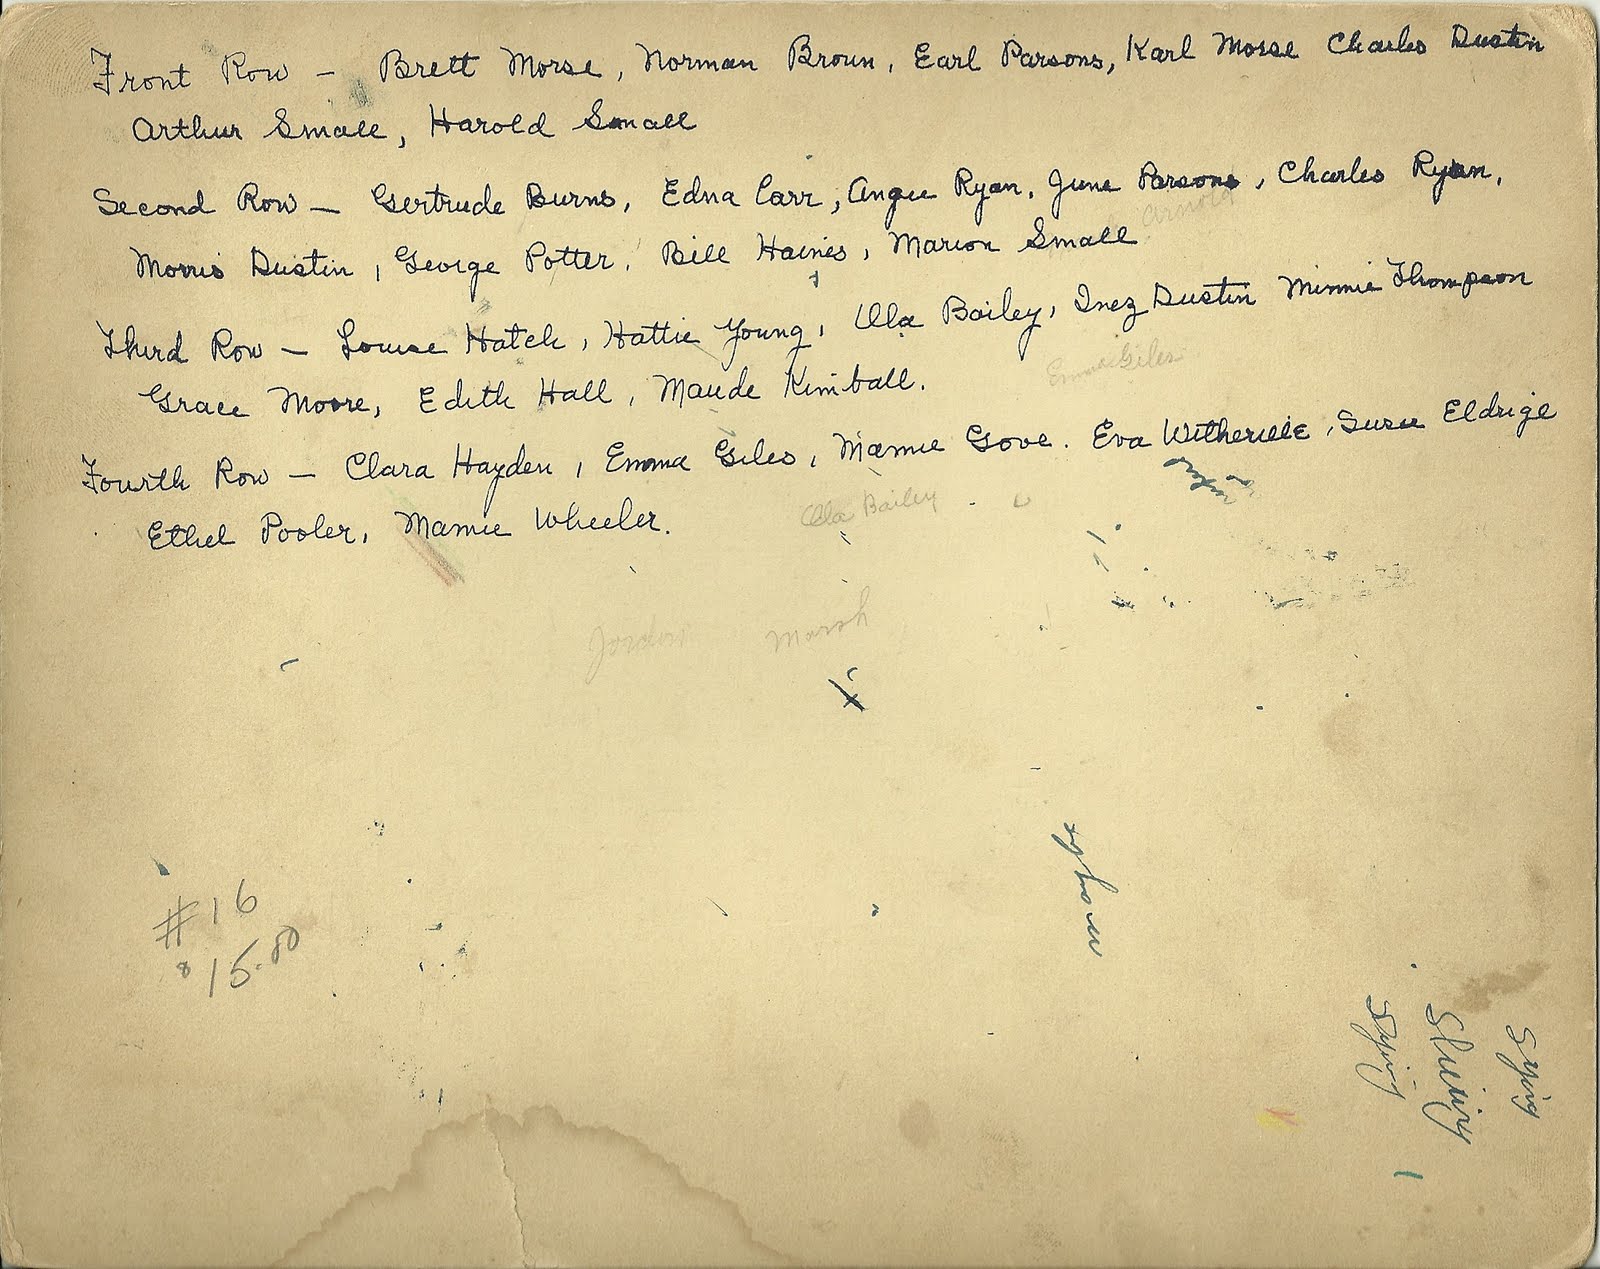 Front Row - Brett Morse, Norman Broun, Earl Parsons, Karl Morse Charles Dustin
Arthur Small, Harold Small
Second Row - Gertrude Burns, Edna Carr, Angie Ryan, June Parsons, Charles Ryan,
Arnold
Morris Dustin, George Potter, Bill Haines, Marion Small
Third Row - Louise Hatch, Hattie Young, Ula Bailey, Inez Dustin Minnie Thompson
Emma Giles
Grace Moore, Edith Hall, Maude Kimball.
Fourth Row - Clara Hayden, Emma Giles, Mamie Gove. Eva Witherille, Susie Eldrige
Ula Bailey
Ethel Pooler, Mamie Wheeler.
Jordan Marsh
#16
$15.00